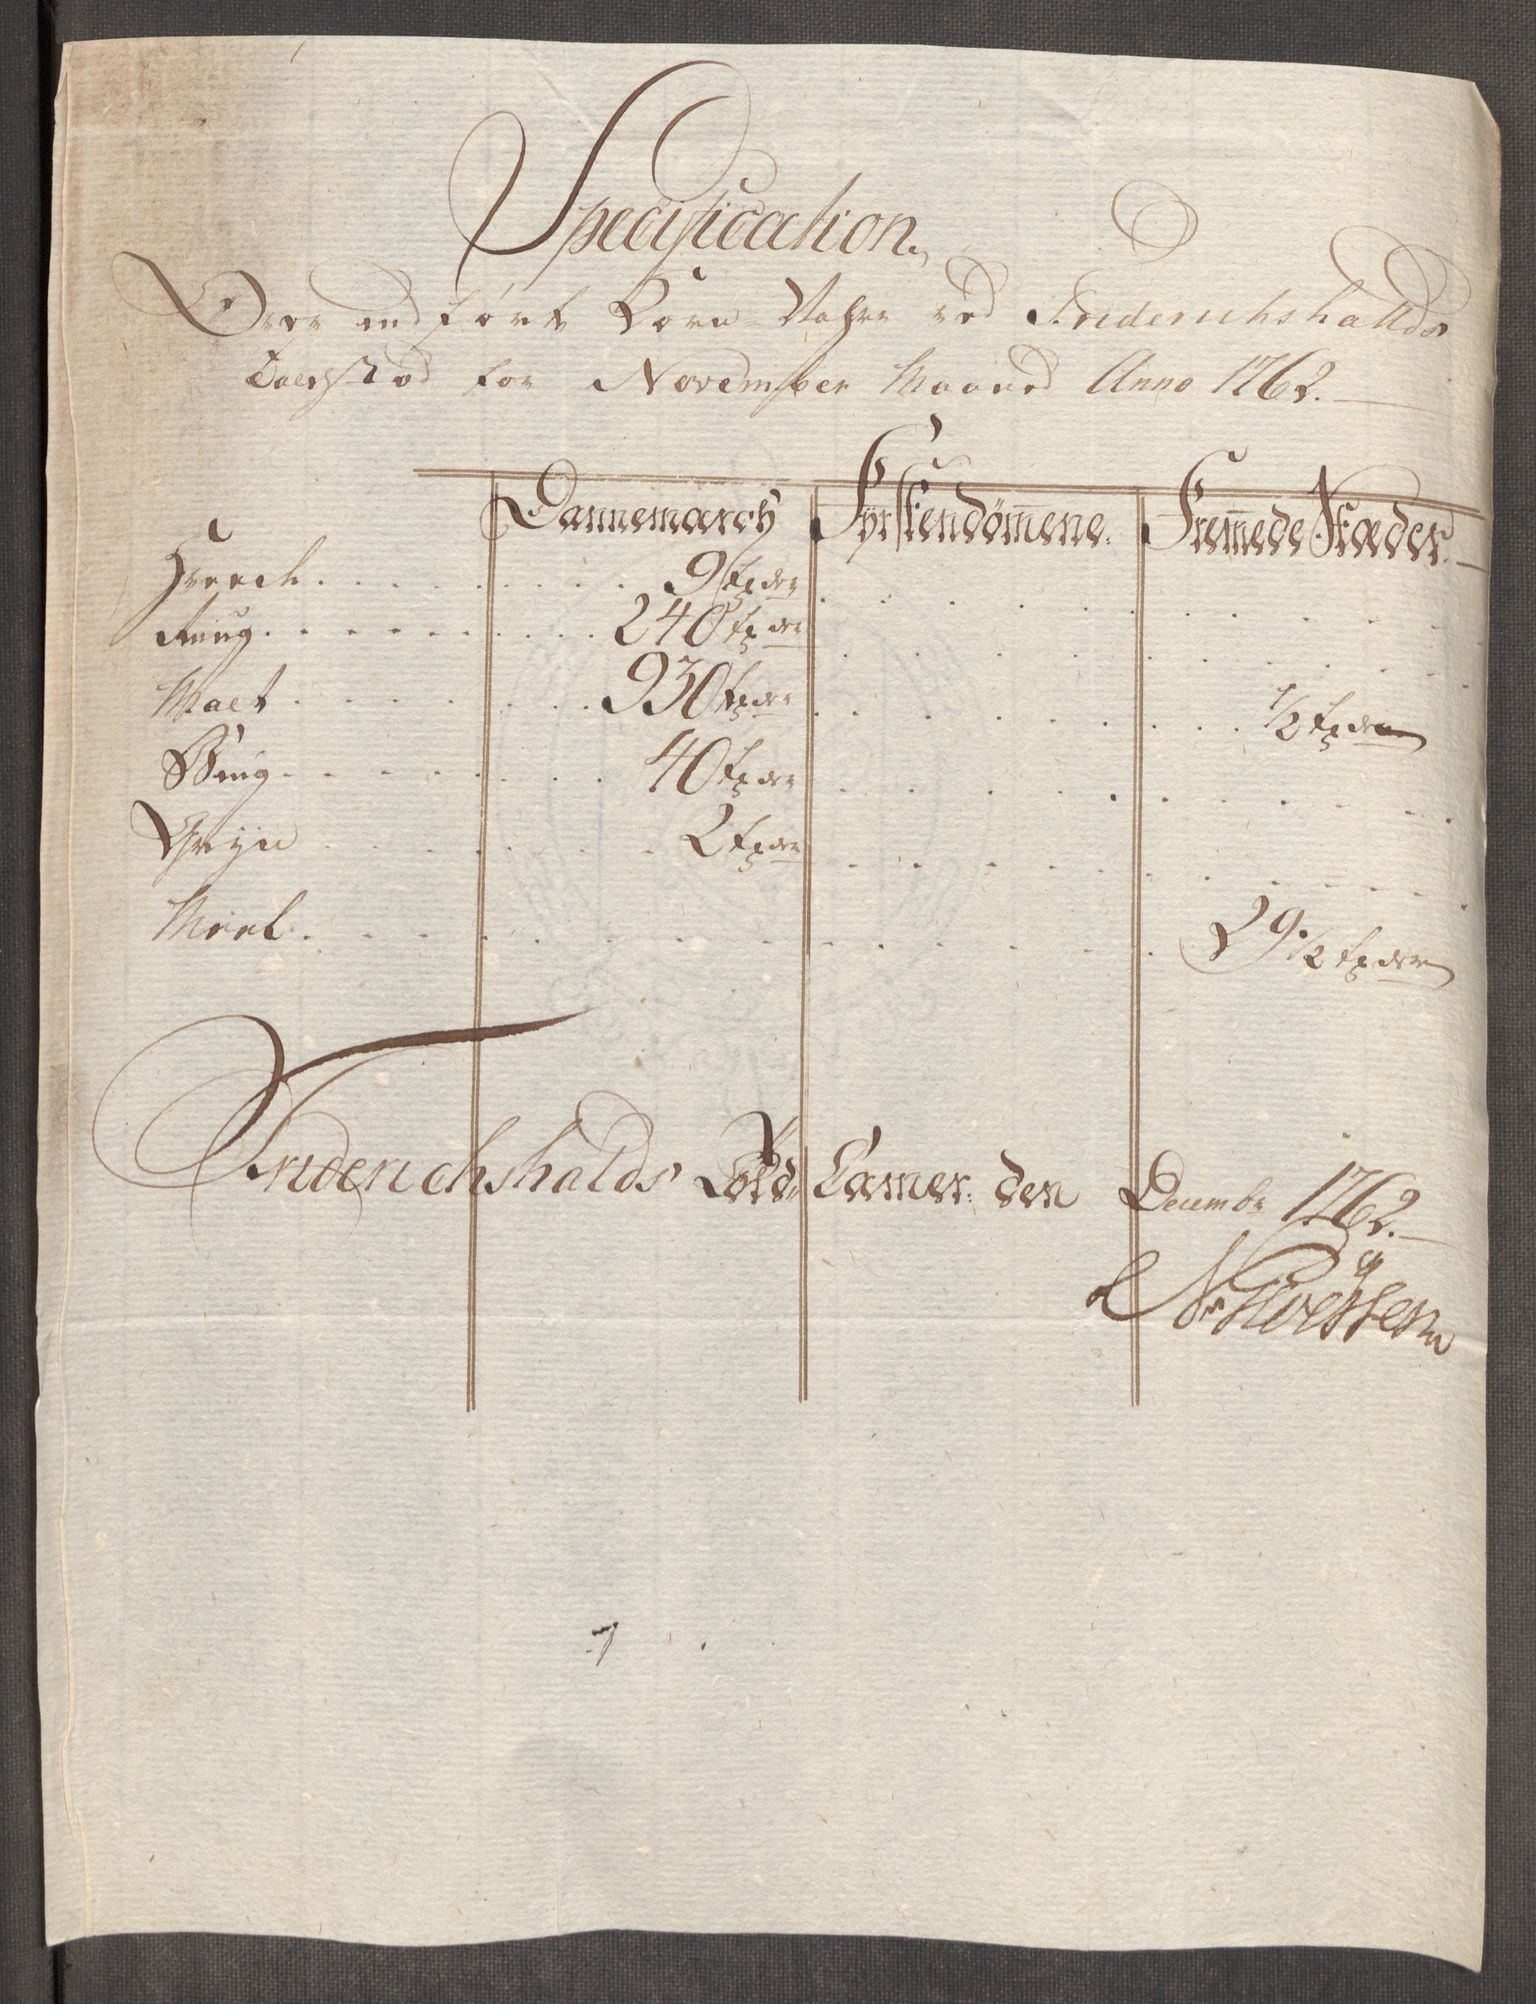 Specification
Over indførte Korn-Vahre ved Friderichshallds
Toldstæd for November Maaned Anno 1762.
Dannemarch Fyrstendømmene. Fremmede Stæder.
Hveede . . . 9 tr der
Rug . . . 240 tr der
Malt . . . 930 tr der . . . 1/2 tr der
Biug . . . 40 tr der
Gryn . . . 2 tr der
Meel . . . 29 1/2 tr der
Friderichshalds Told-Camer. den Decembr 1762.